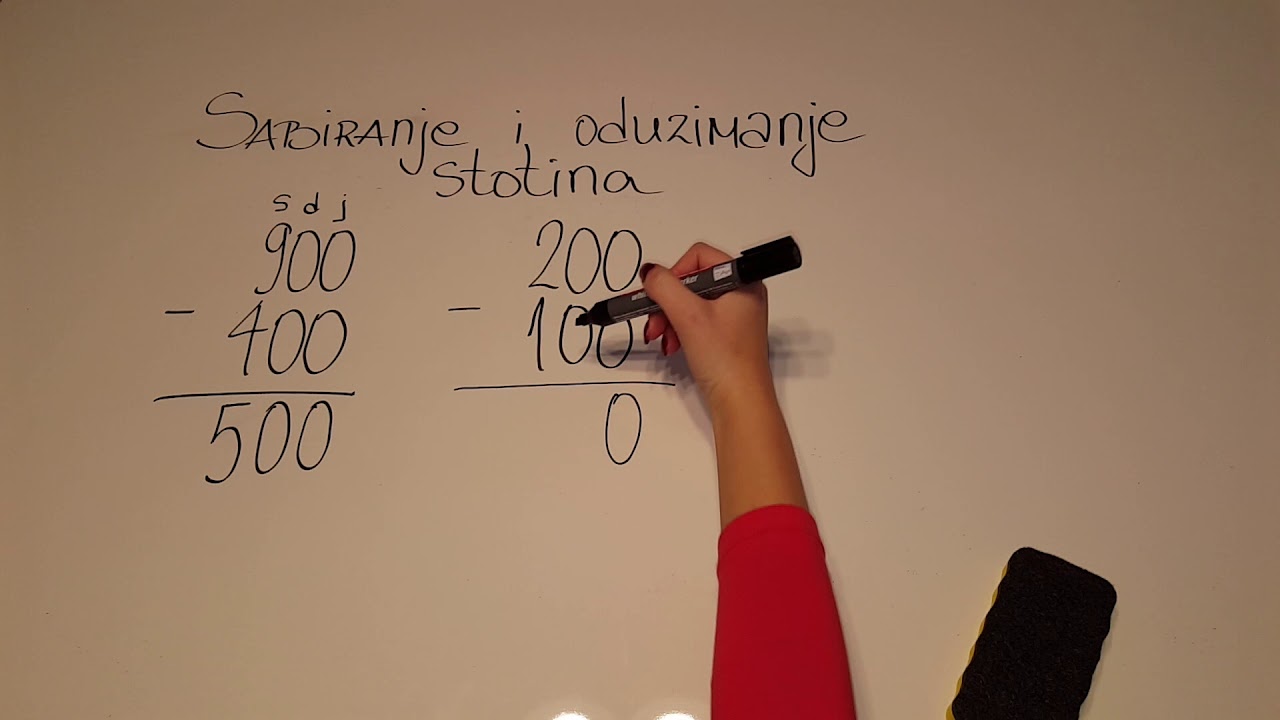 SABIRAnje i oduzimanje
stotina
s d j
900
- 400
500
200
- 100
0